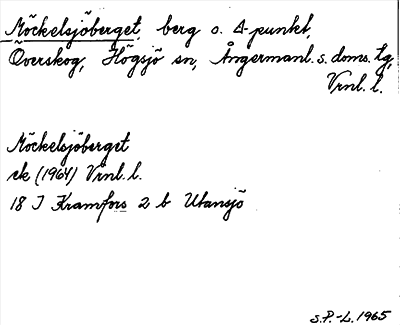 Möckelsjöberget, berg o. Δ-punkt,
Överskog, Högsjö sn, Ångermanl. s. doms. tg,
Vrnl. l.
Möckelsjöberget
ek (1964) Vrnl. l.
18 J Kramfors 2 b Utansjö
S.P.-L. 1965